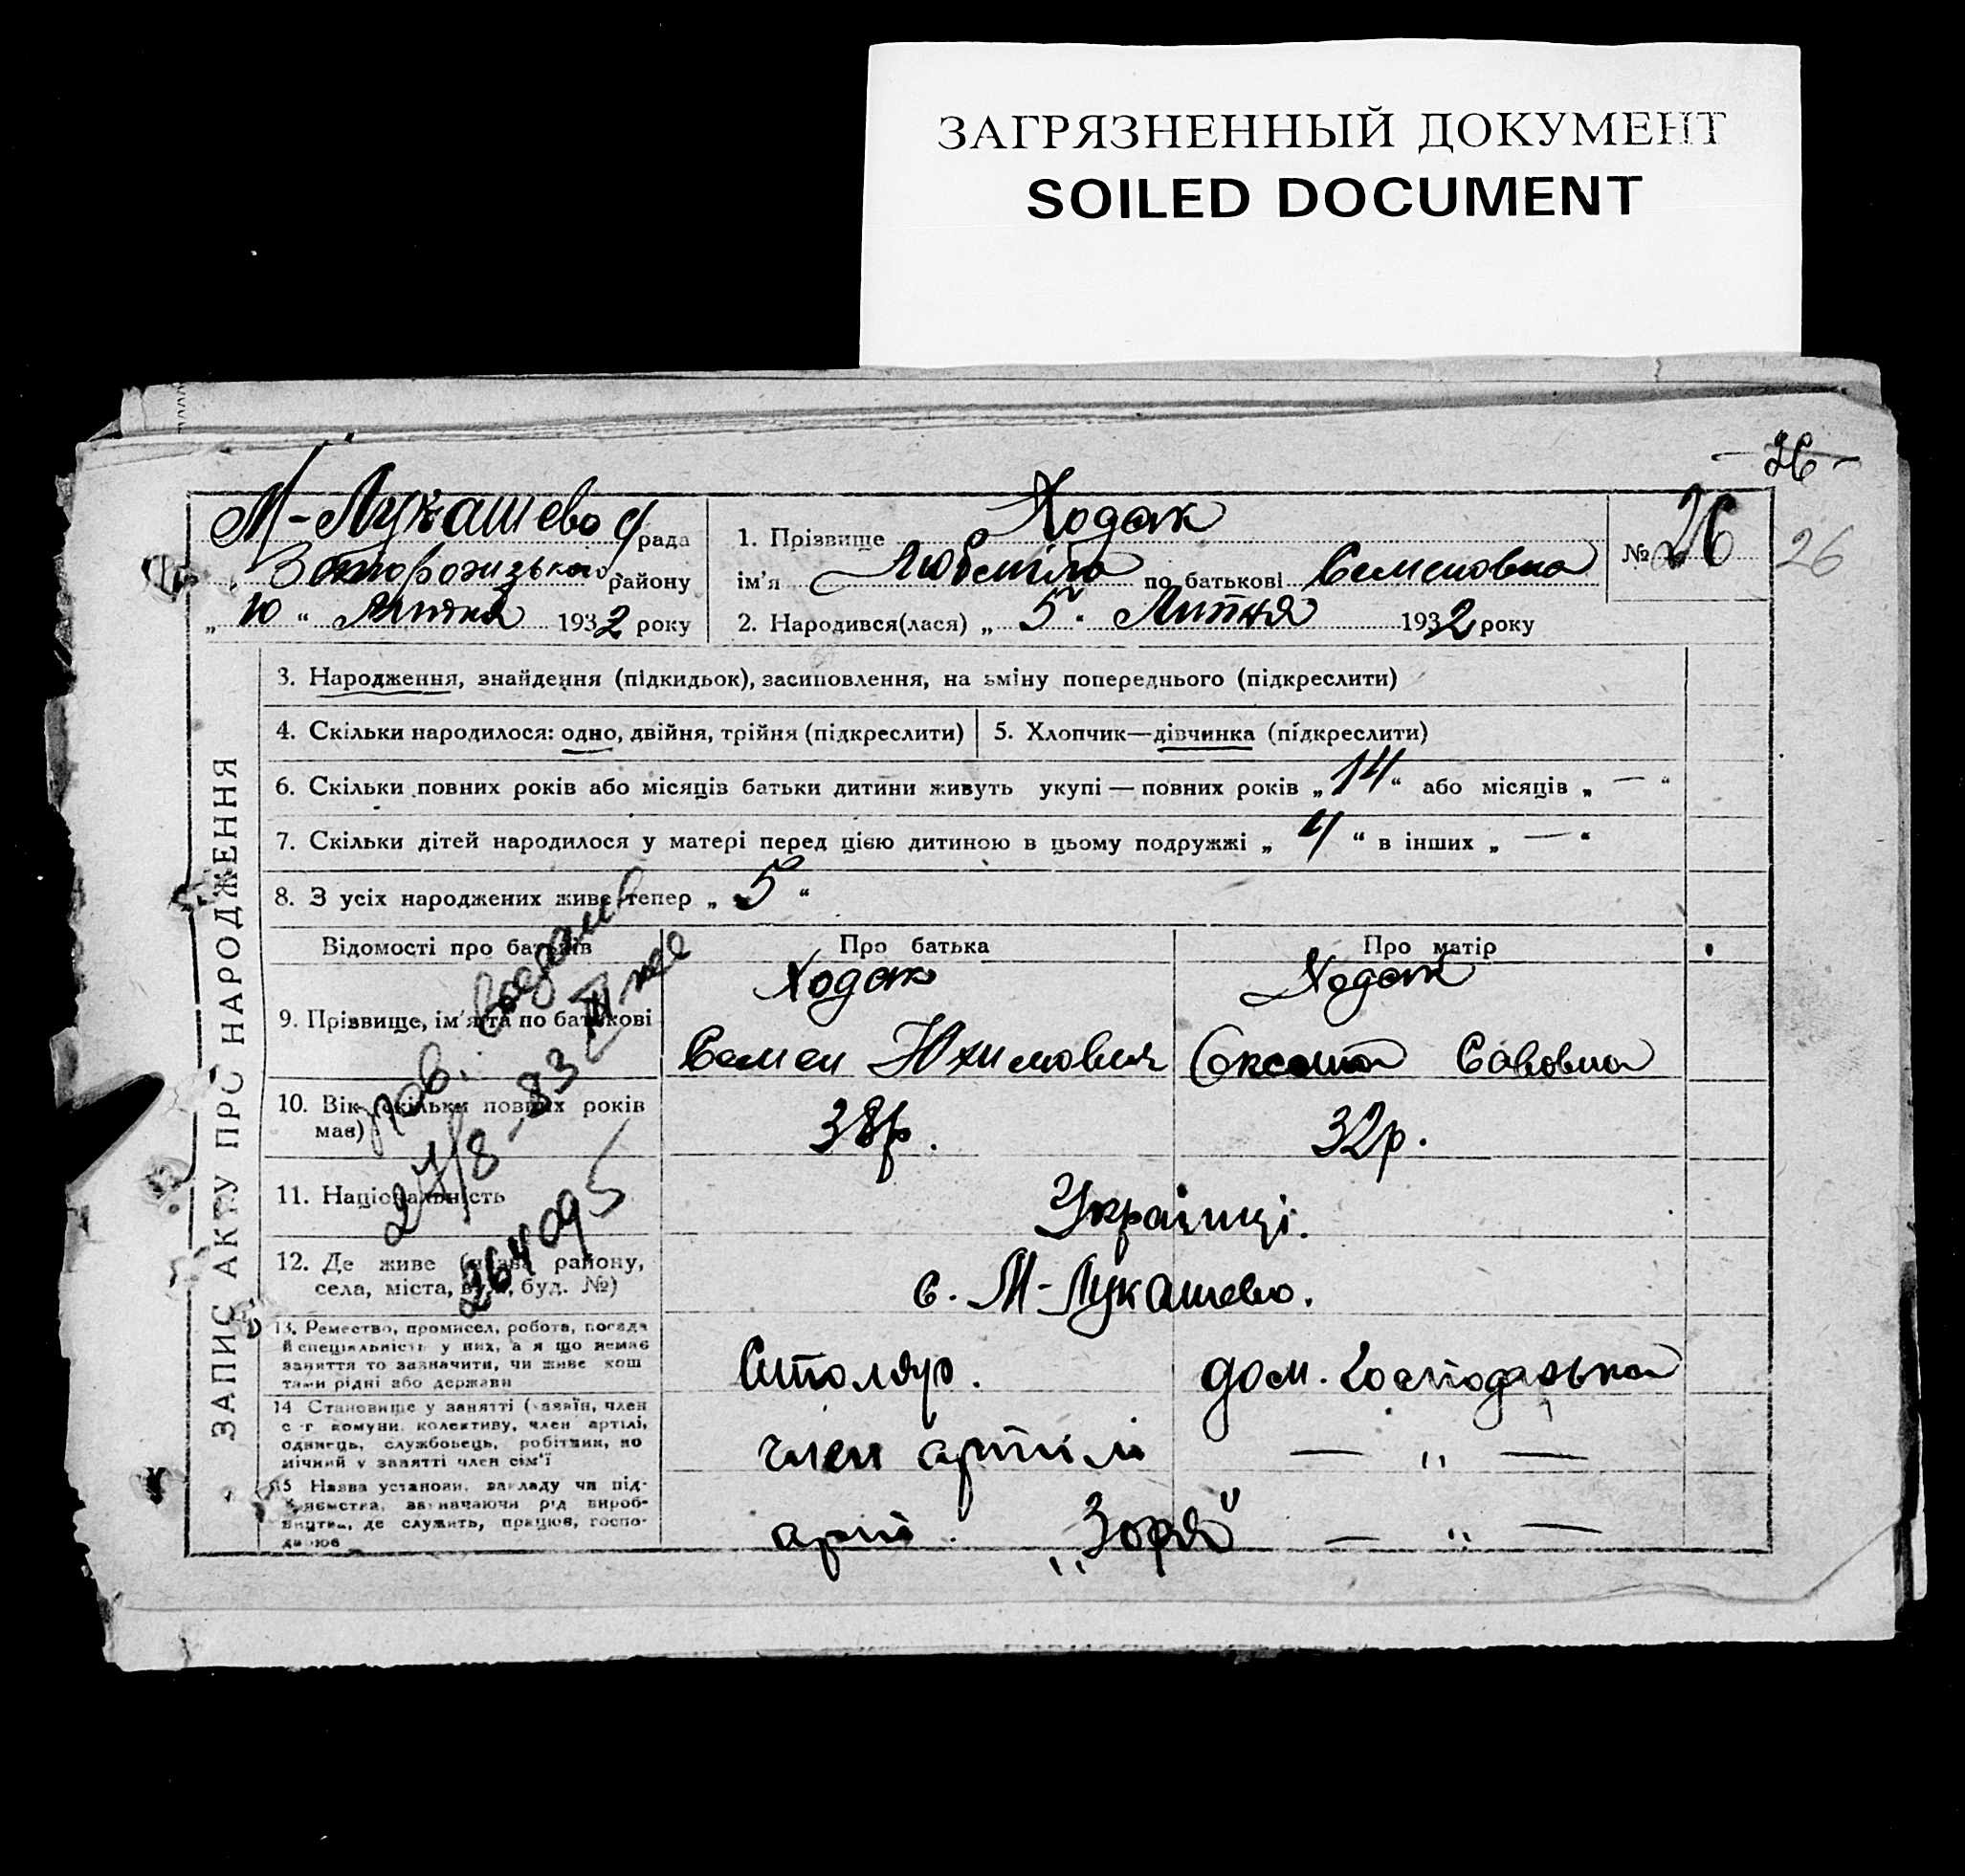 ЗАГРЯЗНЕННЫЙ ДОКУМЕНТ
SOILED DOCUMENT
- 26 -
М-Лукашево рада
Запорозизького району
„ 10 “ Липня 1932 року
1. Прізвище Ходак
ім'я Любов по батькові Семеновна
2. Народився(лася) „ 5 “ Липня 1932 року
№ 26
26
ЗАПИС АКТУ ПРО НАРОДЖЕННЯ
3. Народження, знайдення (підкидьок), засиновлення, на зміну попереднього (підкреслити)
4. Скільки народилося: одно, двійня, трійня (підкреслити)
5. Хлопчик—дівчинка (підкреслити)
6. Скільки повних років або місяців батьки дитини живуть укупі — повних років „ 14 “ або місяців „ — “
7. Скільки дітей народилося у матері перед цією дитиною в цьому подружжі „ 4 “ в інших „ — “
8. З усіх народжених живе тепер „ 5 “
Відомості про батьків
Про батька
Про матір
9. Прізвище, ім'я та по батькові
Ходак
Семен Юхимович
Ходак
Оксана Савовна
10. Вік скільки повних років має)
38р.
32р.
11. Національність
Українці.
12. Де живе (назва району, села, міста, вул., буд. №)
с. М-Лукашево.
13. Ремество, промисел, робота, посада й спеціяльність у них, а я що немає заняття то зазначити, чи живе кош тами рідні або держави
Столяр.
дом. господарька
14 Становище у занятті (хазяїн, член с-г комуни, колективу, член артілі, одинець, службовець, робітник, по мічний у занятті член сім'ї
член артіли
— „ —
15 Назва установи, закладу чи підприємства, зазначаючи рід виробництва, де служить, працює, господарює
арт. „Зоря“
— „ —
27/8-83
264095